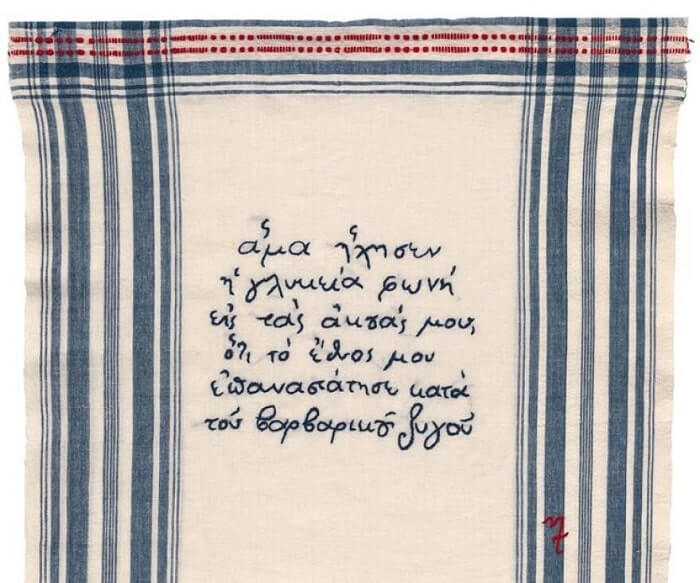 ἅμα ἤχησεν
ἡ γλυκεία φωνή
εἰς τάς ἀκοάς μου,
ὅτι τό ἔθνος μου
ἐπαναστάτησε κατά
τοῦ βαρβαρικοῦ ζυγοῦ